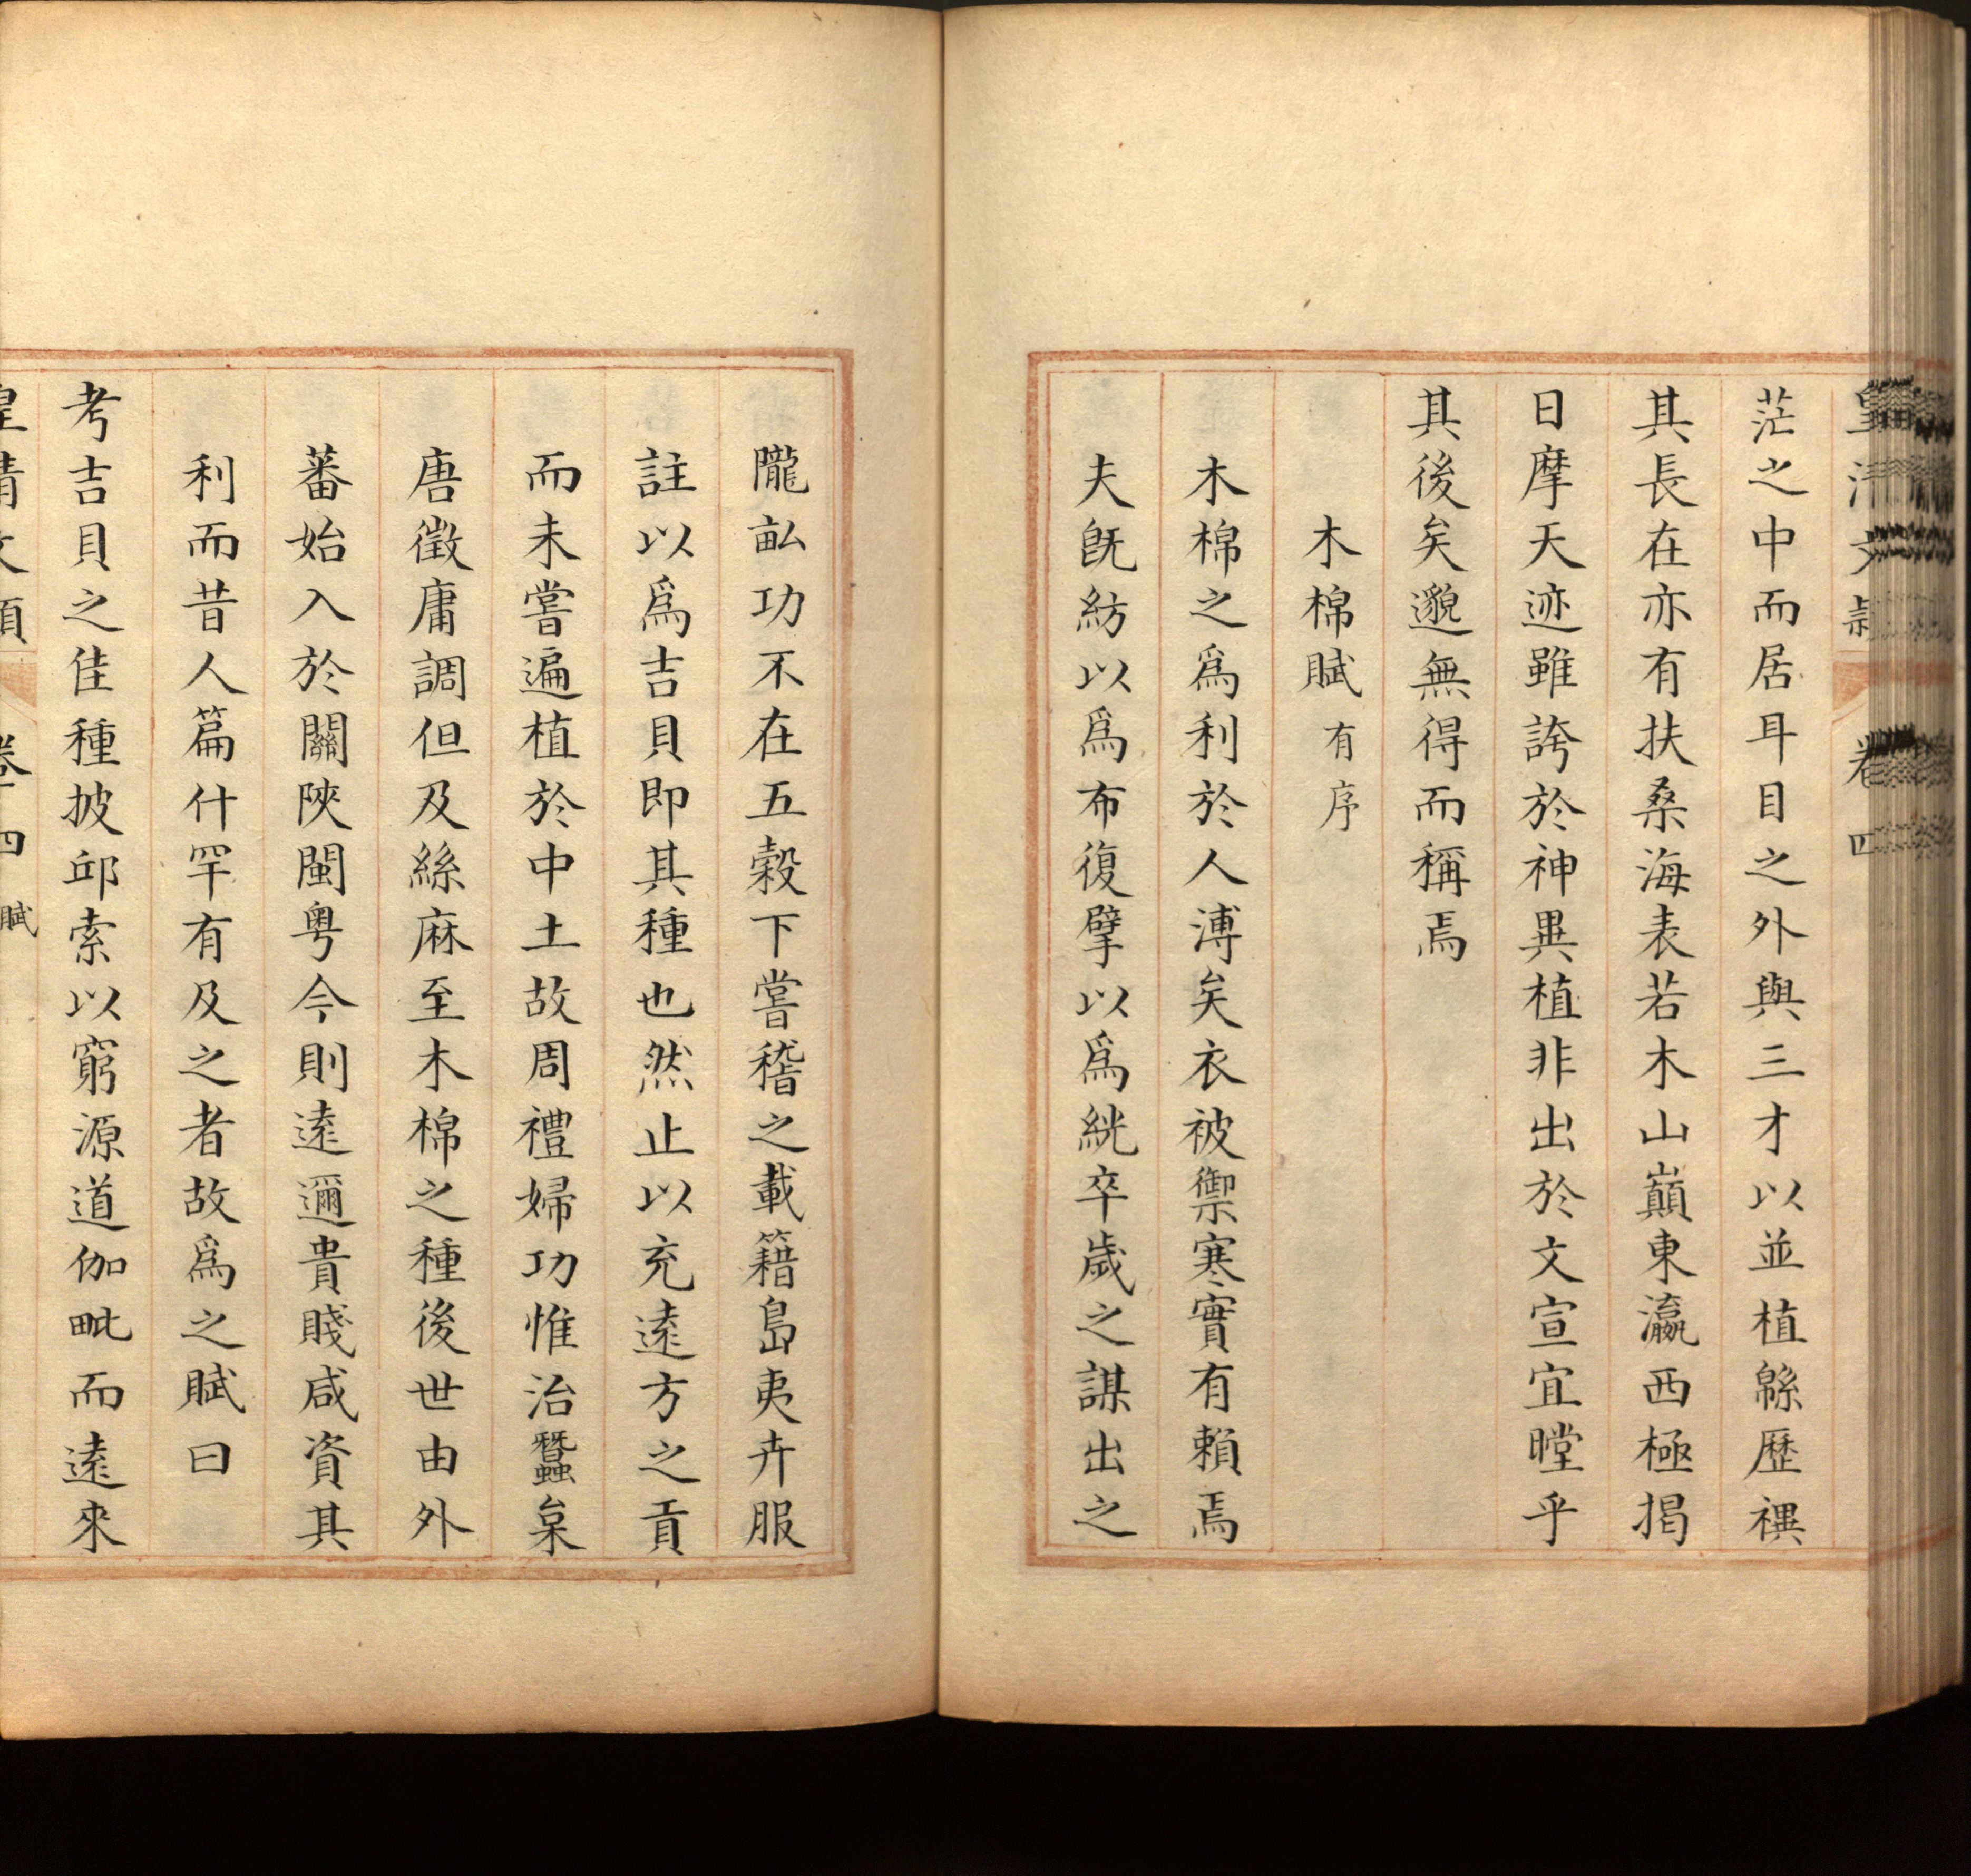 皇清文
卷四
茫之中而居耳目之外與三才以並植緜歷禩
其長在亦有扶桑海表若木山巔東瀛西極揭
日摩天迹雖誇於神異植非出於文宣宜瞠乎
其後矣邈無得而稱焉
木棉賦有序
木棉之爲利於人溥矣衣被禦寒實有賴焉
夫旣紡以爲布復擘以爲絖卒歲之謀出之
隴畝功不在五穀下嘗稽之載籍島夷卉服
註以爲吉貝即其種也然止以充遠方之貢
而未嘗遍植於中土故周禮婦功惟治蠶枲
唐徵庸調但及絲麻至木棉之種後世由外
蕃始入於關陝閩粤今則遠邇貴賤咸資其
利而昔人篇什罕有及之者故爲之賦曰
考吉貝之佳種披邱索以窮源道伽毗而遠來
皇清文
卷四 賦